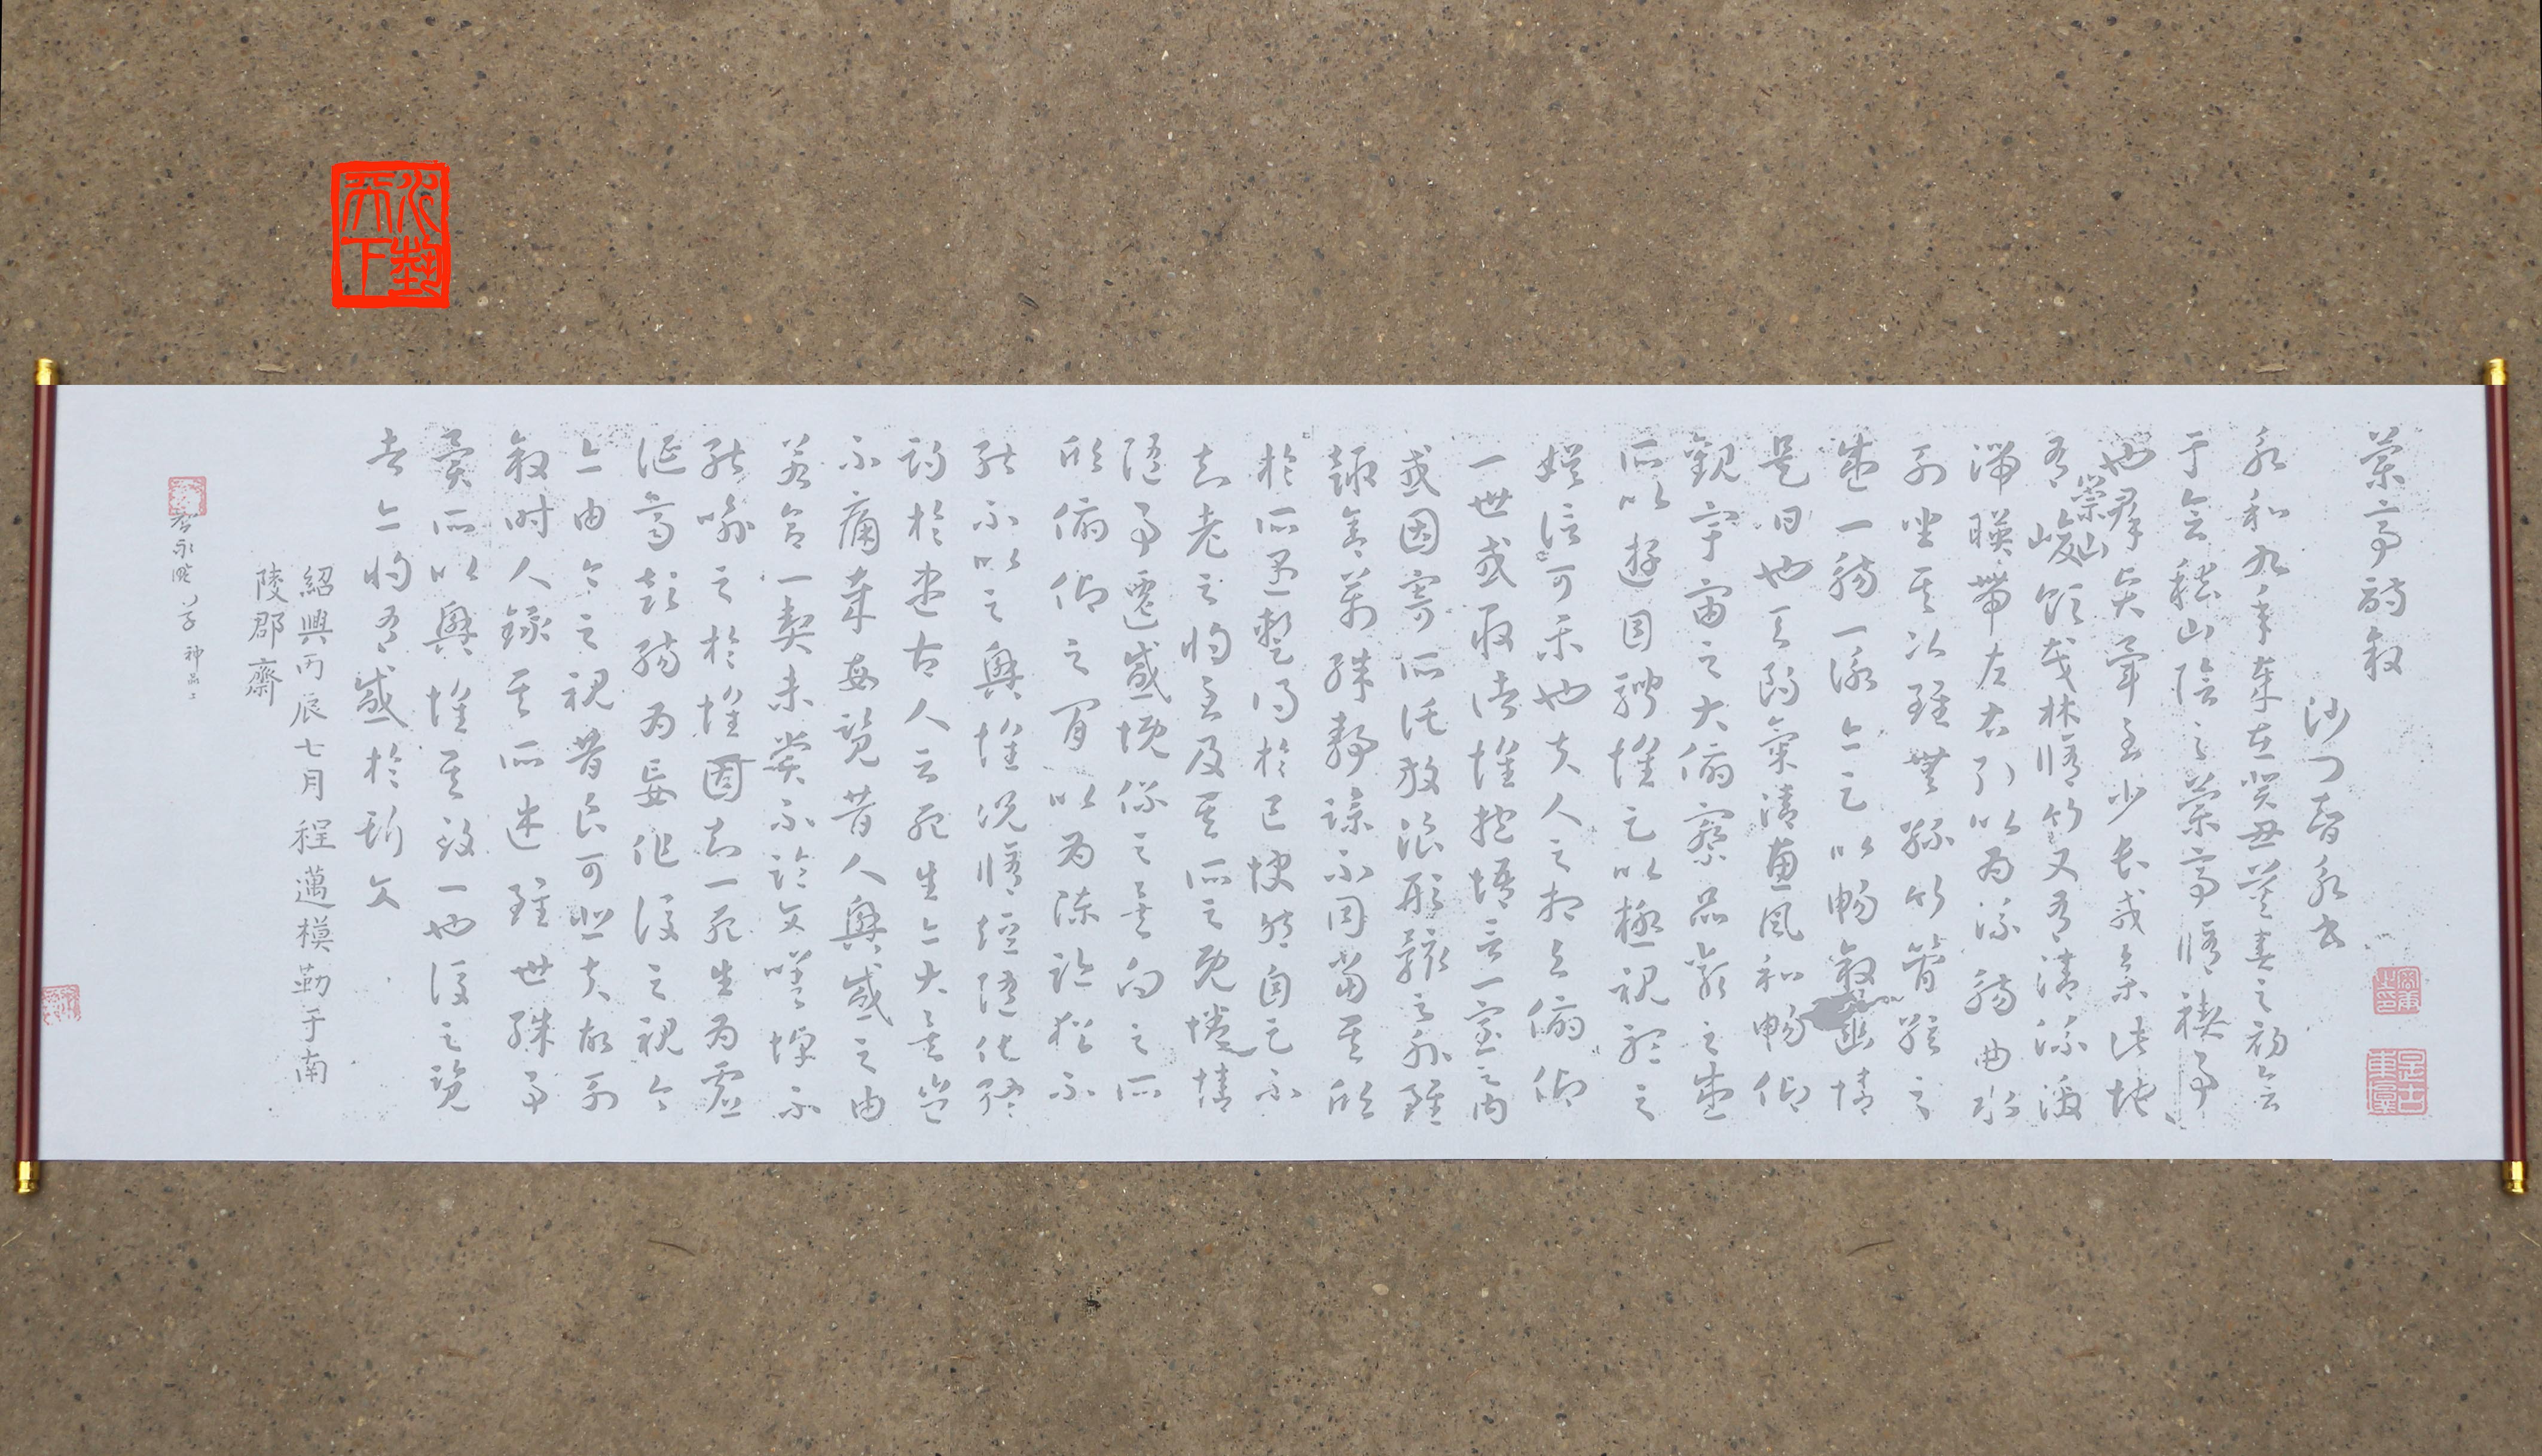 蘭亭詩叙
沙門智永書
永和九年歲在癸丑莫春之初會
于會稽山陰之蘭亭脩禊事
也群賢畢至少長咸集此地
崇山
有峻領茂林脩竹又有清流激
湍暎帶左右引以為流觴曲水
列坐其次雖無絲竹管絃之
盛一觴一詠亦足以暢敘幽情
是日也天朗氣清惠風和暢仰
觀宇宙之大俯察品類之盛
所以遊目騁懷足以極視聽之
娛信可樂也夫人之相與俯仰
一世或取諸懷抱悟言一室之內
或因寄所託放浪形骸之外雖
趣舍萬殊靜躁不同當其欣
於所遇暫得於己快然自足不
知老之將至及其所之既惓情
隨事遷感慨係之矣向之所
欣俯仰之間以為陳迹猶不
能不以之興懷況脩短隨化終
期於盡古人云死生亦大矣豈
不痛哉每覽昔人興感之由
若合一契未嘗不臨文嗟悼不
能喻之於懷固知一死生為虛
誕齊彭殤為妄作後之視今
亦由今之視昔可悲夫故列
叙時人錄其所述雖世殊事
異所以興懷其致一也後之覽
者亦將有感於斯文
紹興丙辰七月程邁模勒于南
陵郡齋
永 神品上
天下